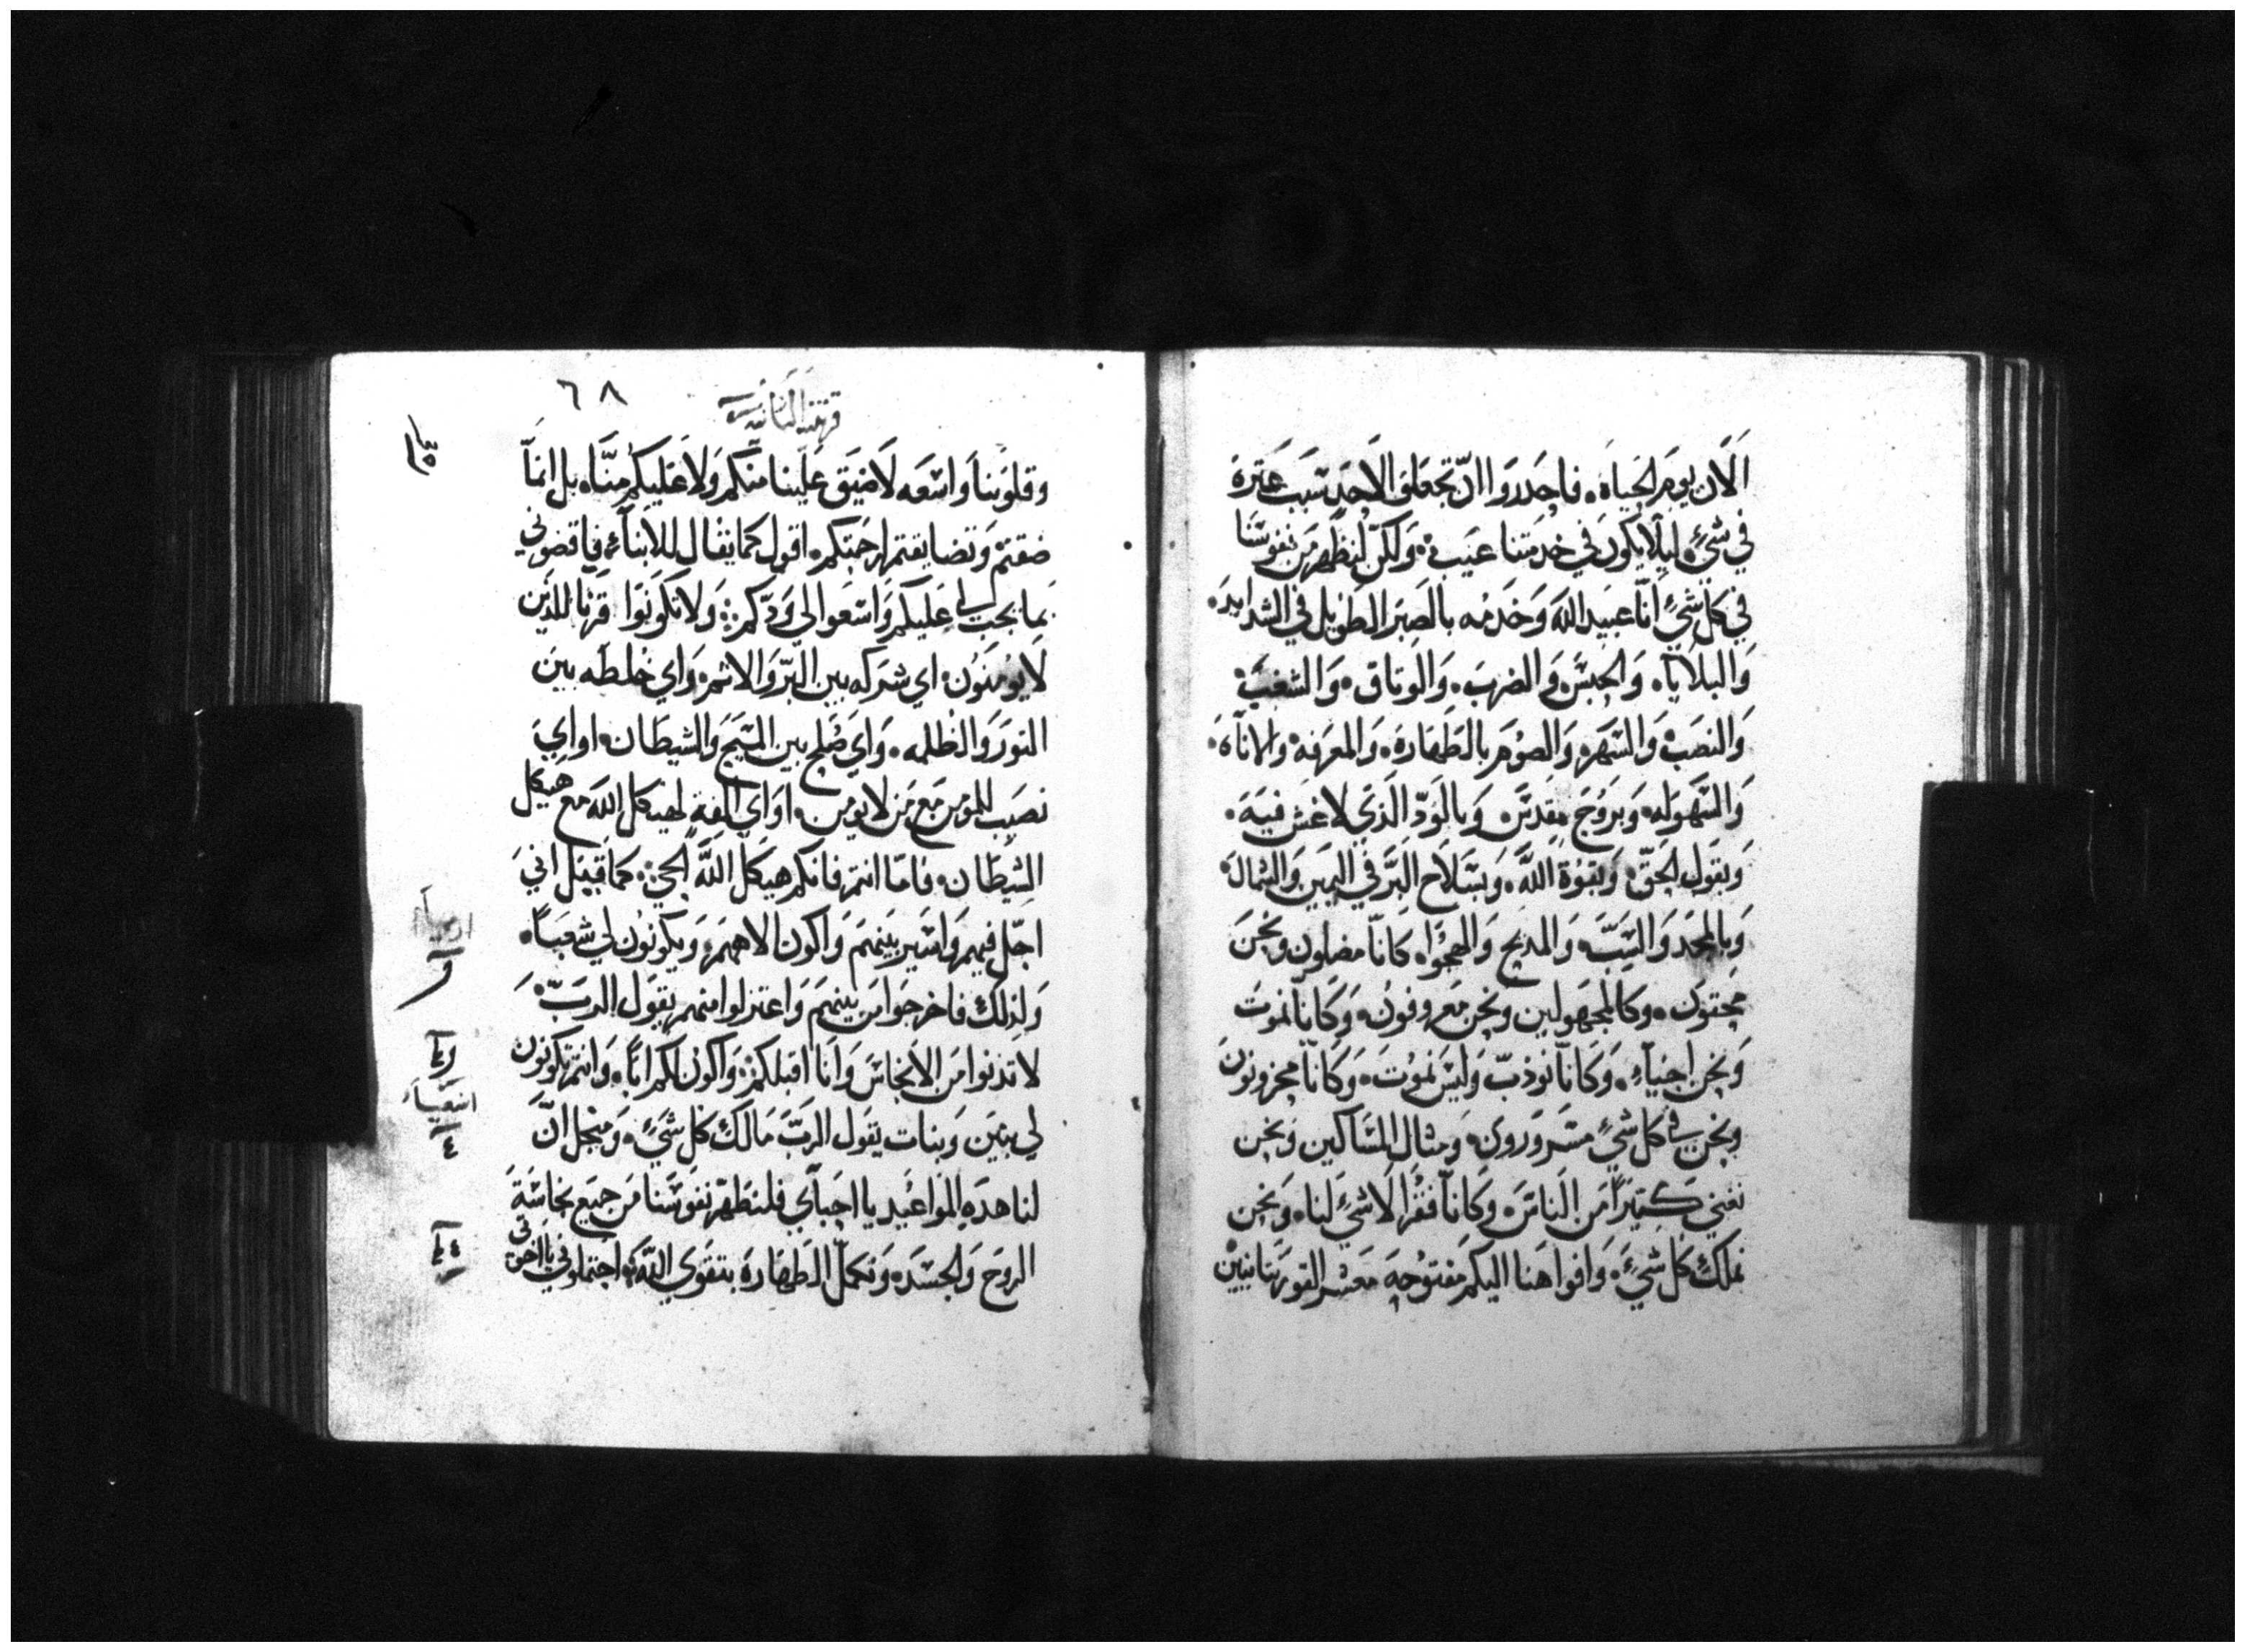 الان يوم الحياه. فاحدروا ان تجعلو لاحد سبب عترة
في شيءٍ. ليلا يكون في خدمتنا عيب. ولكن لنظهر من نفوسنا
في كل شيءٍ انّا عبيد الله وخدمه بالصبر الطويل في الشدايد.
والبلايا. والحبس والضرب. والوتاق. والشغب.
والنصب والسهر. والصوم بالطهارة. والمعرفة والاناه.
والسهوله. وبروح مقدس. وبالودّ الذي لا غش فيه.
وبقول الحقّ. وبقوة الله. وبسلاح البرّ في اليمين والشمال.
وبالمجد والسبّ. والمديح والهجوا. كانّا مضلون ونحن
محقون. وكالمجهولين ونحن معروفون. وكانّا نموت
ونحن احياء. وكانّا نودّب وليس نموت. وكانّا محزونون
ونحن في كل شيءٍ مسرورون. ومثال المساكين ونحن
نغني كتيراً من الناس. وكانّا فقرا لا شيءَ لنا. ونحن
نملك كل شيءٍ. وافواهنا اليكم مفتوحه معشر القورنتانيين
قرنتيه التانية
٦٨
وقلوبنا واسعه لا ضيق علينا منكم ولا عليكم منّا. بل انما
ضقتم وتضايقتم لرحمتكم. اقول كما يقال للابناء. فاقضوني
بما يجب لي عليكم واسعوا الي ودّكم: ولا تكونوا قرنا للذين
لا يومنون. اي شركه بين البرّ والاثم. واي خلطه بين
النور والظلمه. واي صلح بين المسيح والشيطان. او اي
نصيب للمؤمن مع من لا يومن. او اي الفةٍ لهيكل الله مع هيكل
الشيطان. فاما انتم فانكم هيكل الله الحي. كما قيل اني
احلّ فيهم واسير بينهم واكون الاههم. ويكونون لي شعباً.
ولذلك فاخرجوا من بينهم واعتزلوا منهم يقول الربّ.
لا تدنوا من الانجاس وانا اقبلكم. واكون لكم اباً. وانتم تكونون
لي بنين وبنات يقول الربّ مالك كل شيءٍ. ومن اجل انّ
لنا هده المواعيد يا احباي فلنطهّر نفوسنا من جميع نجاسة
الروح والجسد. ونكمل الطهارة بتقوي الله. احتملوني يا اخوتي
اشعيا